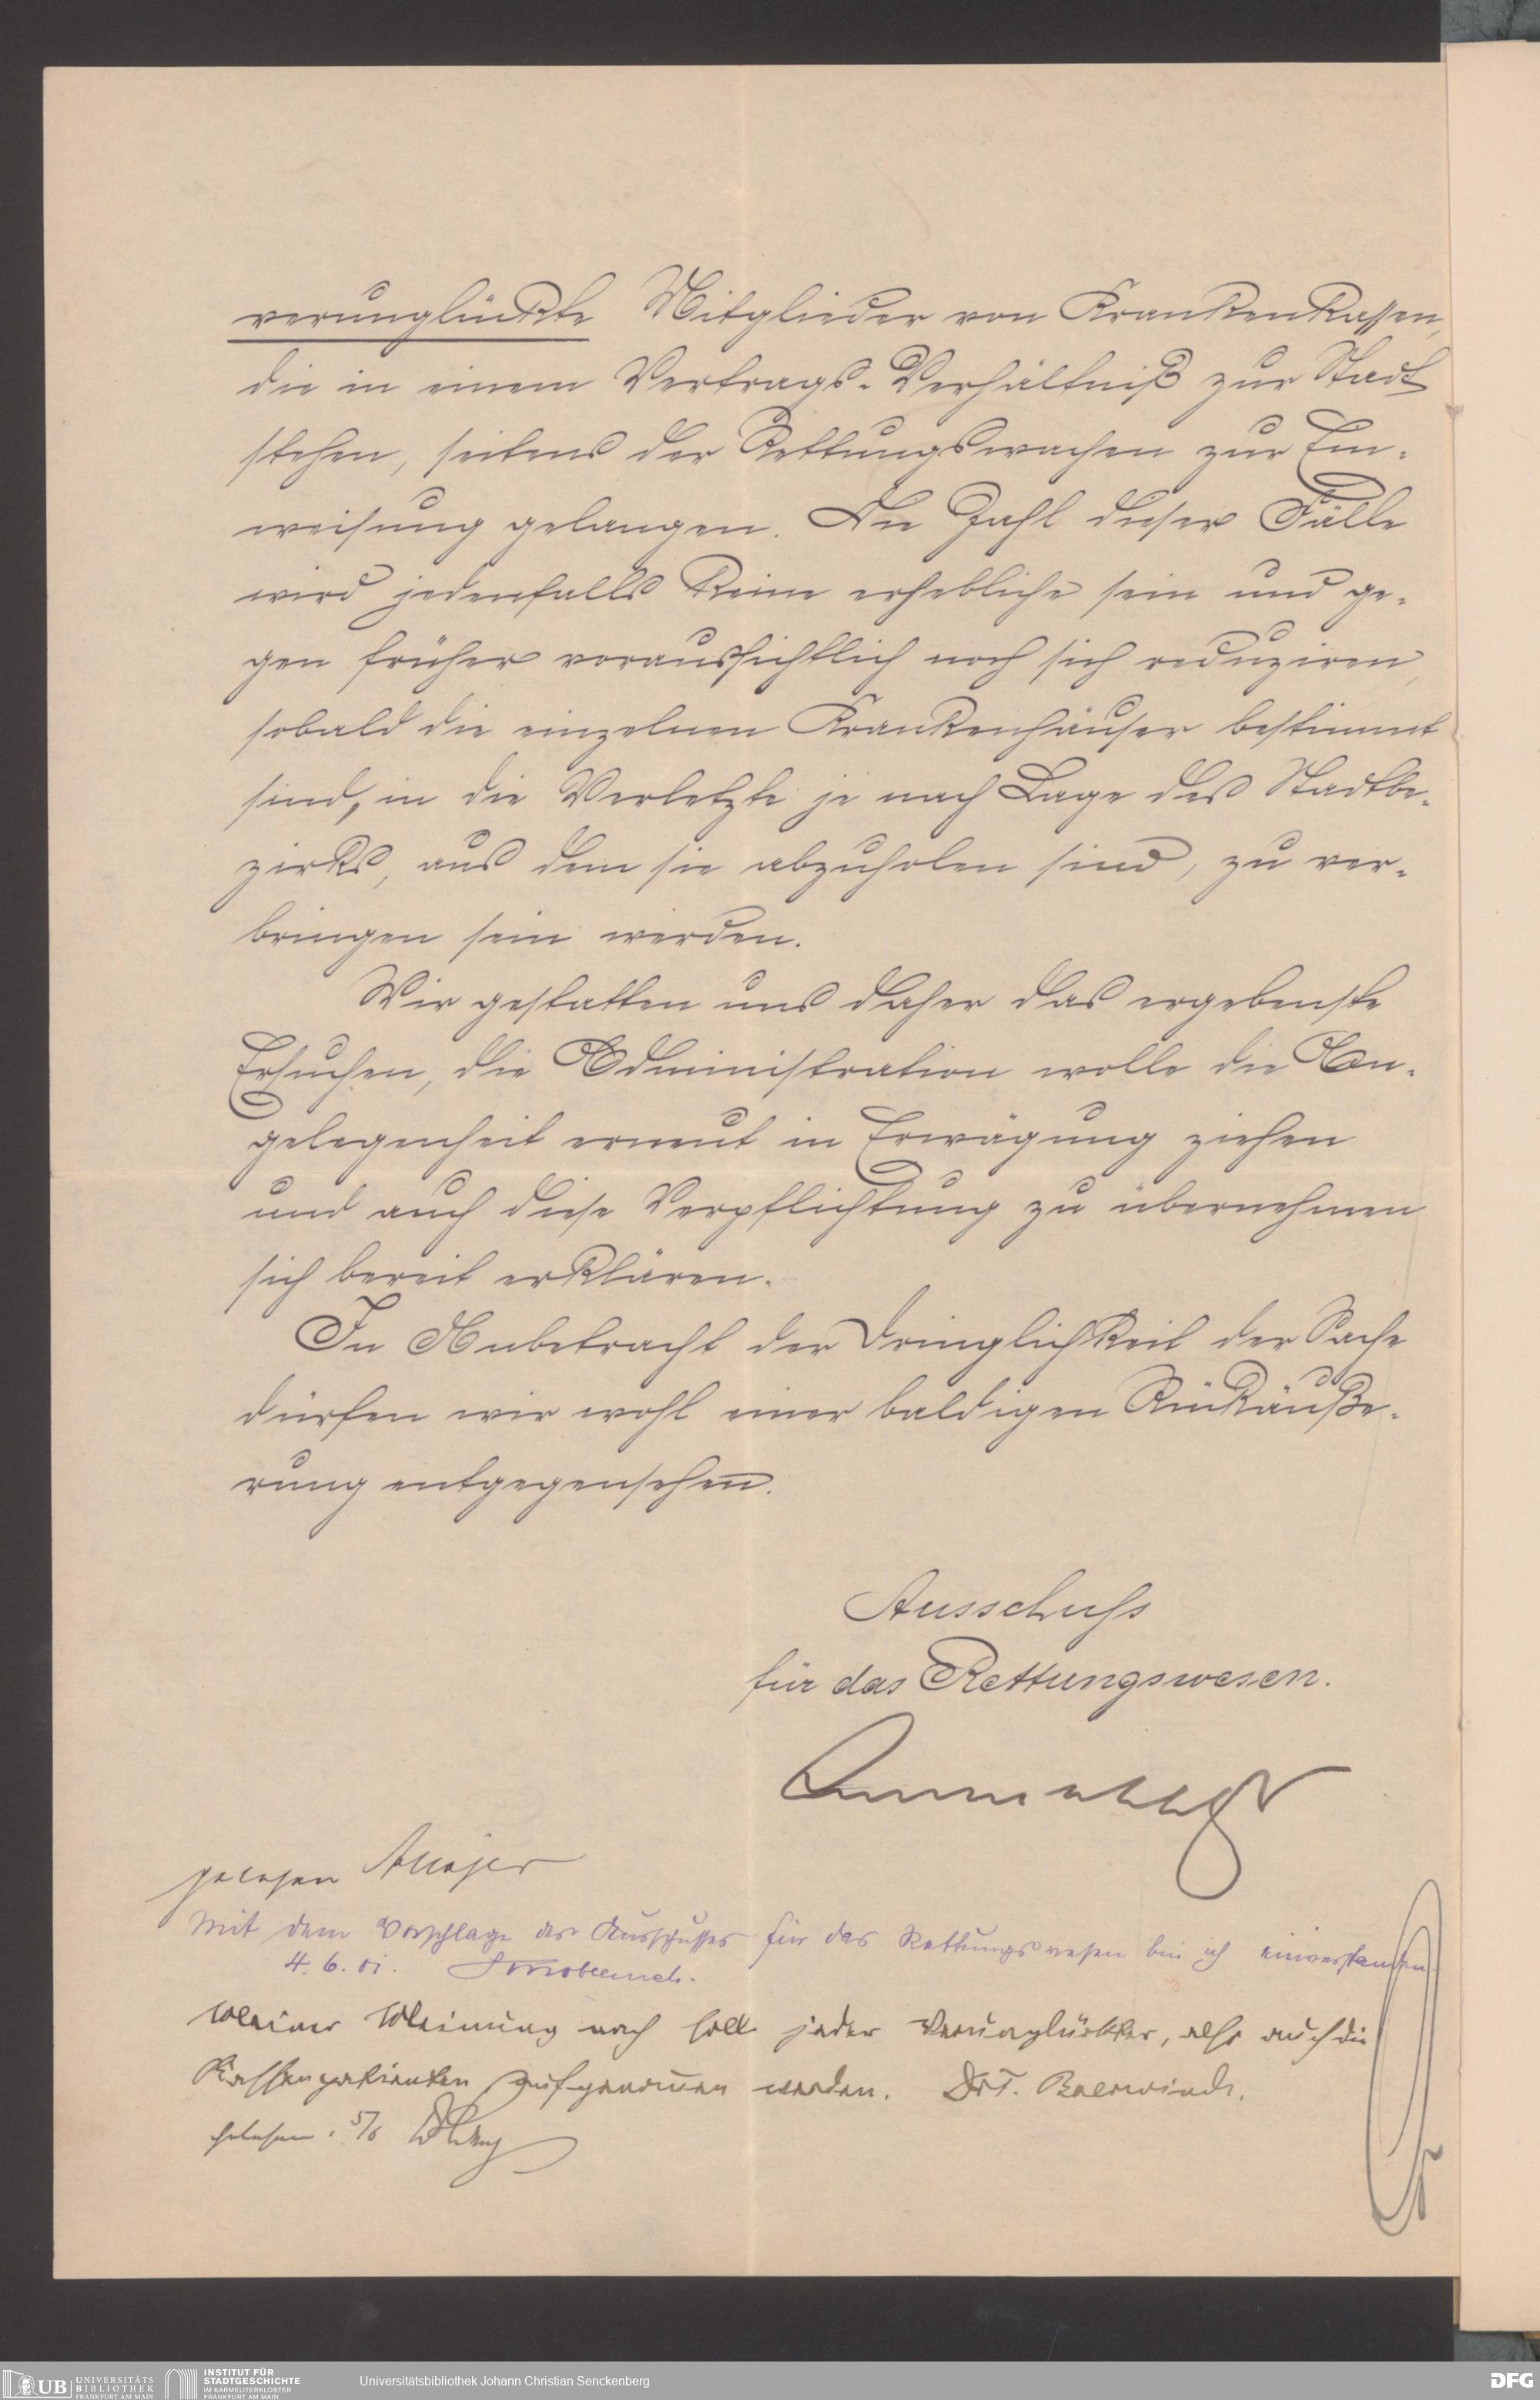 verunglückte Mitglieder von Krankenkassen,
die in einem Vertrags-Verhältniß zur Stadt
stehen, seitens der Rettungswachen zur Ein-
weisung gelangen. Die Zahl dieser Fälle
wird jedenfalls keine erhebliche sein und ge-
gen früher voraussichtlich noch sich reduziren,
sobald die einzelnen Krankenhäuser bestimmt
sind, in die Verletzte je nach Lage des Stadtbe-
zirks, aus dem sie abzuholen sind, zu ver-
bringen sein werden.
Wir gestatten uns daher das ergebenste
Ersuchen, die Administration wolle die An-
gelegenheit erneut in Erwägung ziehen
und auch diese Verpflichtung zu übernehmen
sich bereit erklären.
In Anbetracht der Dringlichkeit der Sache
dürfen wir wohl einer baldigen Rückäuße-
rung entgegensehen.
Ausschuss
für das Rettungswesen.
gelesen
Mit dem Vorschlage des Ausschusses für das Rettungswesen bin ich einverstanden
4. 6. 01.
Meiner Meinung nach soll jeder Verunglückter, also auch die
Kassenpatienten aufgenommen werden. Dr T. Baerwindt.
Gelesen. 5/6
UB UNIVERSITÄTS BIBLIOTHEK FRANKFURT AM MAIN
INSTITUT FÜR STADTGESCHICHTE IM KARMELITERKLOSTER FRANKFURT AM MAIN
Universitätsbibliothek Johann Christian Senckenberg
DFG